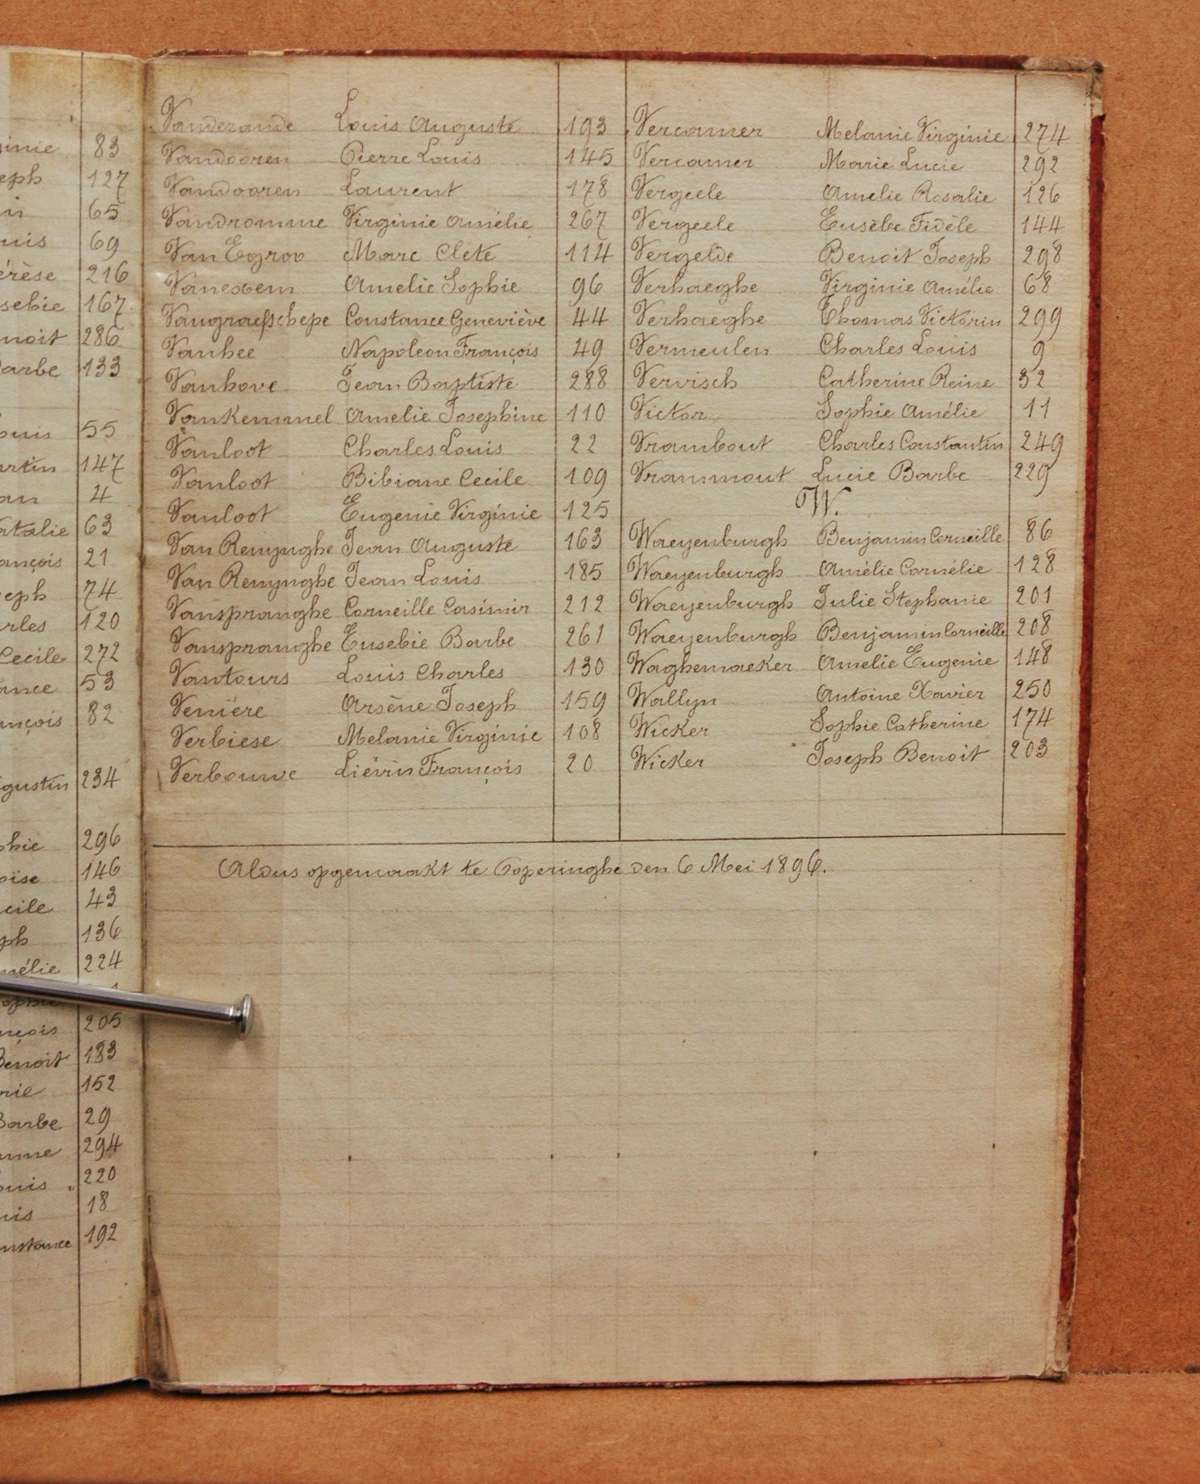 83
127
65
69
216
167
286
133
55
147
4
63
21
74
120
272
53
82
234
296
146
43
136
224
205
183
152
29
294
220
18
192
Vanderande Louis Auguste 193
Vandooren Pierre Louis 145
Vandooren Laurent 178
Vandromme Virginie Amélie 267
Van Eygroo Marc Clete 114
Vanexem Amelie Sophie 96
Vangraefschepe Constance Geneviève 44
Vanhee Napoleon François 49
Vanhove Jean Baptiste 288
VanKemmel Amelie Josephine 110
Vanloot Charles Louis 22
Vanloot Bibiane Cecile 109
Vanloot Eugenie Virginie 125
Van Renynghe Jean Auguste 163
Van Renynghe Jean Louis 185
Vanspranghe Corneille Casimir 212
Vanspranghe Eusebie Barbe 261
Vantours Louis Charles 130
Venière Arsène Joseph 159
Verbiese Melanie Virginie 108
Verbouwe Liévin François 20
Vercamer Melanie Virginie 274
Vercamer Marie Lucie 292
Vergeele Amelie Rosalie 126
Vergeele Eusèbe Fidèle 144
Vergelde Benoit Joseph 298
Verhaeghe Virginie Amélie 68
Verhaeghe Thomas Victorin 299
Vermeulen Charles Louis 9
Vervisch Catherine Reine 32
Victor Sophie Amélie 11
Vrambout Charles Constantin 249
Vrammout Lucie Barbe 229
W.
Waeyenburgh Benjamin Corneille 86
Waeyenburgh Amélie Cornélie 128
Waeyenburgh Julie Stephanie 201
Waeyenburgh Benjamin Corneille 208
Waghemaeker Amelie Eugenie 148
Wallyn Antoine Xavier 250
Wicker Sophie Catherine 174
Wicker Joseph Benoit 203
Aldus opgemaakt te Poperinghe den 6 Mei 1896.